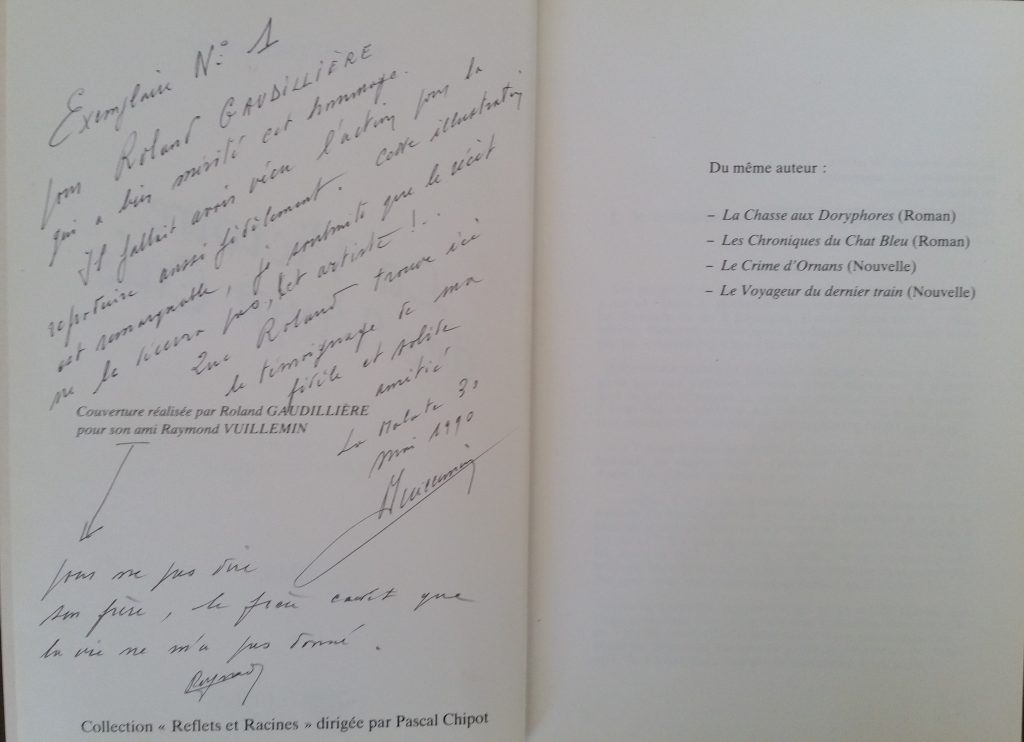 Exemplaire N° 1
pour Roland GAUDILLIÈRE
qui a bien mérité cet hommage.
Il fallait avoir vécu l'action pour la
reproduire aussi fidèlement. Cette illustration
est remarquable, je souhaite que le récit
ne la décevra pas, cet artiste !..
Que Roland trouve ici
le témoignage de ma
fidèle et solide
amitié
La Malate 30
mai 1990
Vuillemin
Couverture réalisée par Roland GAUDILLIÈRE
pour son ami Raymond VUILLEMIN
pour ne pas dire
son frère, le frère cadet que
la vie ne m'a pas donné.
Raymond
Collection « Reflets et Racines » dirigée par Pascal Chipot
Du même auteur :
– La Chasse aux Doryphores (Roman)
– Les Chroniques du Chat Bleu (Roman)
– Le Crime d'Ornans (Nouvelle)
– Le Voyageur du dernier train (Nouvelle)